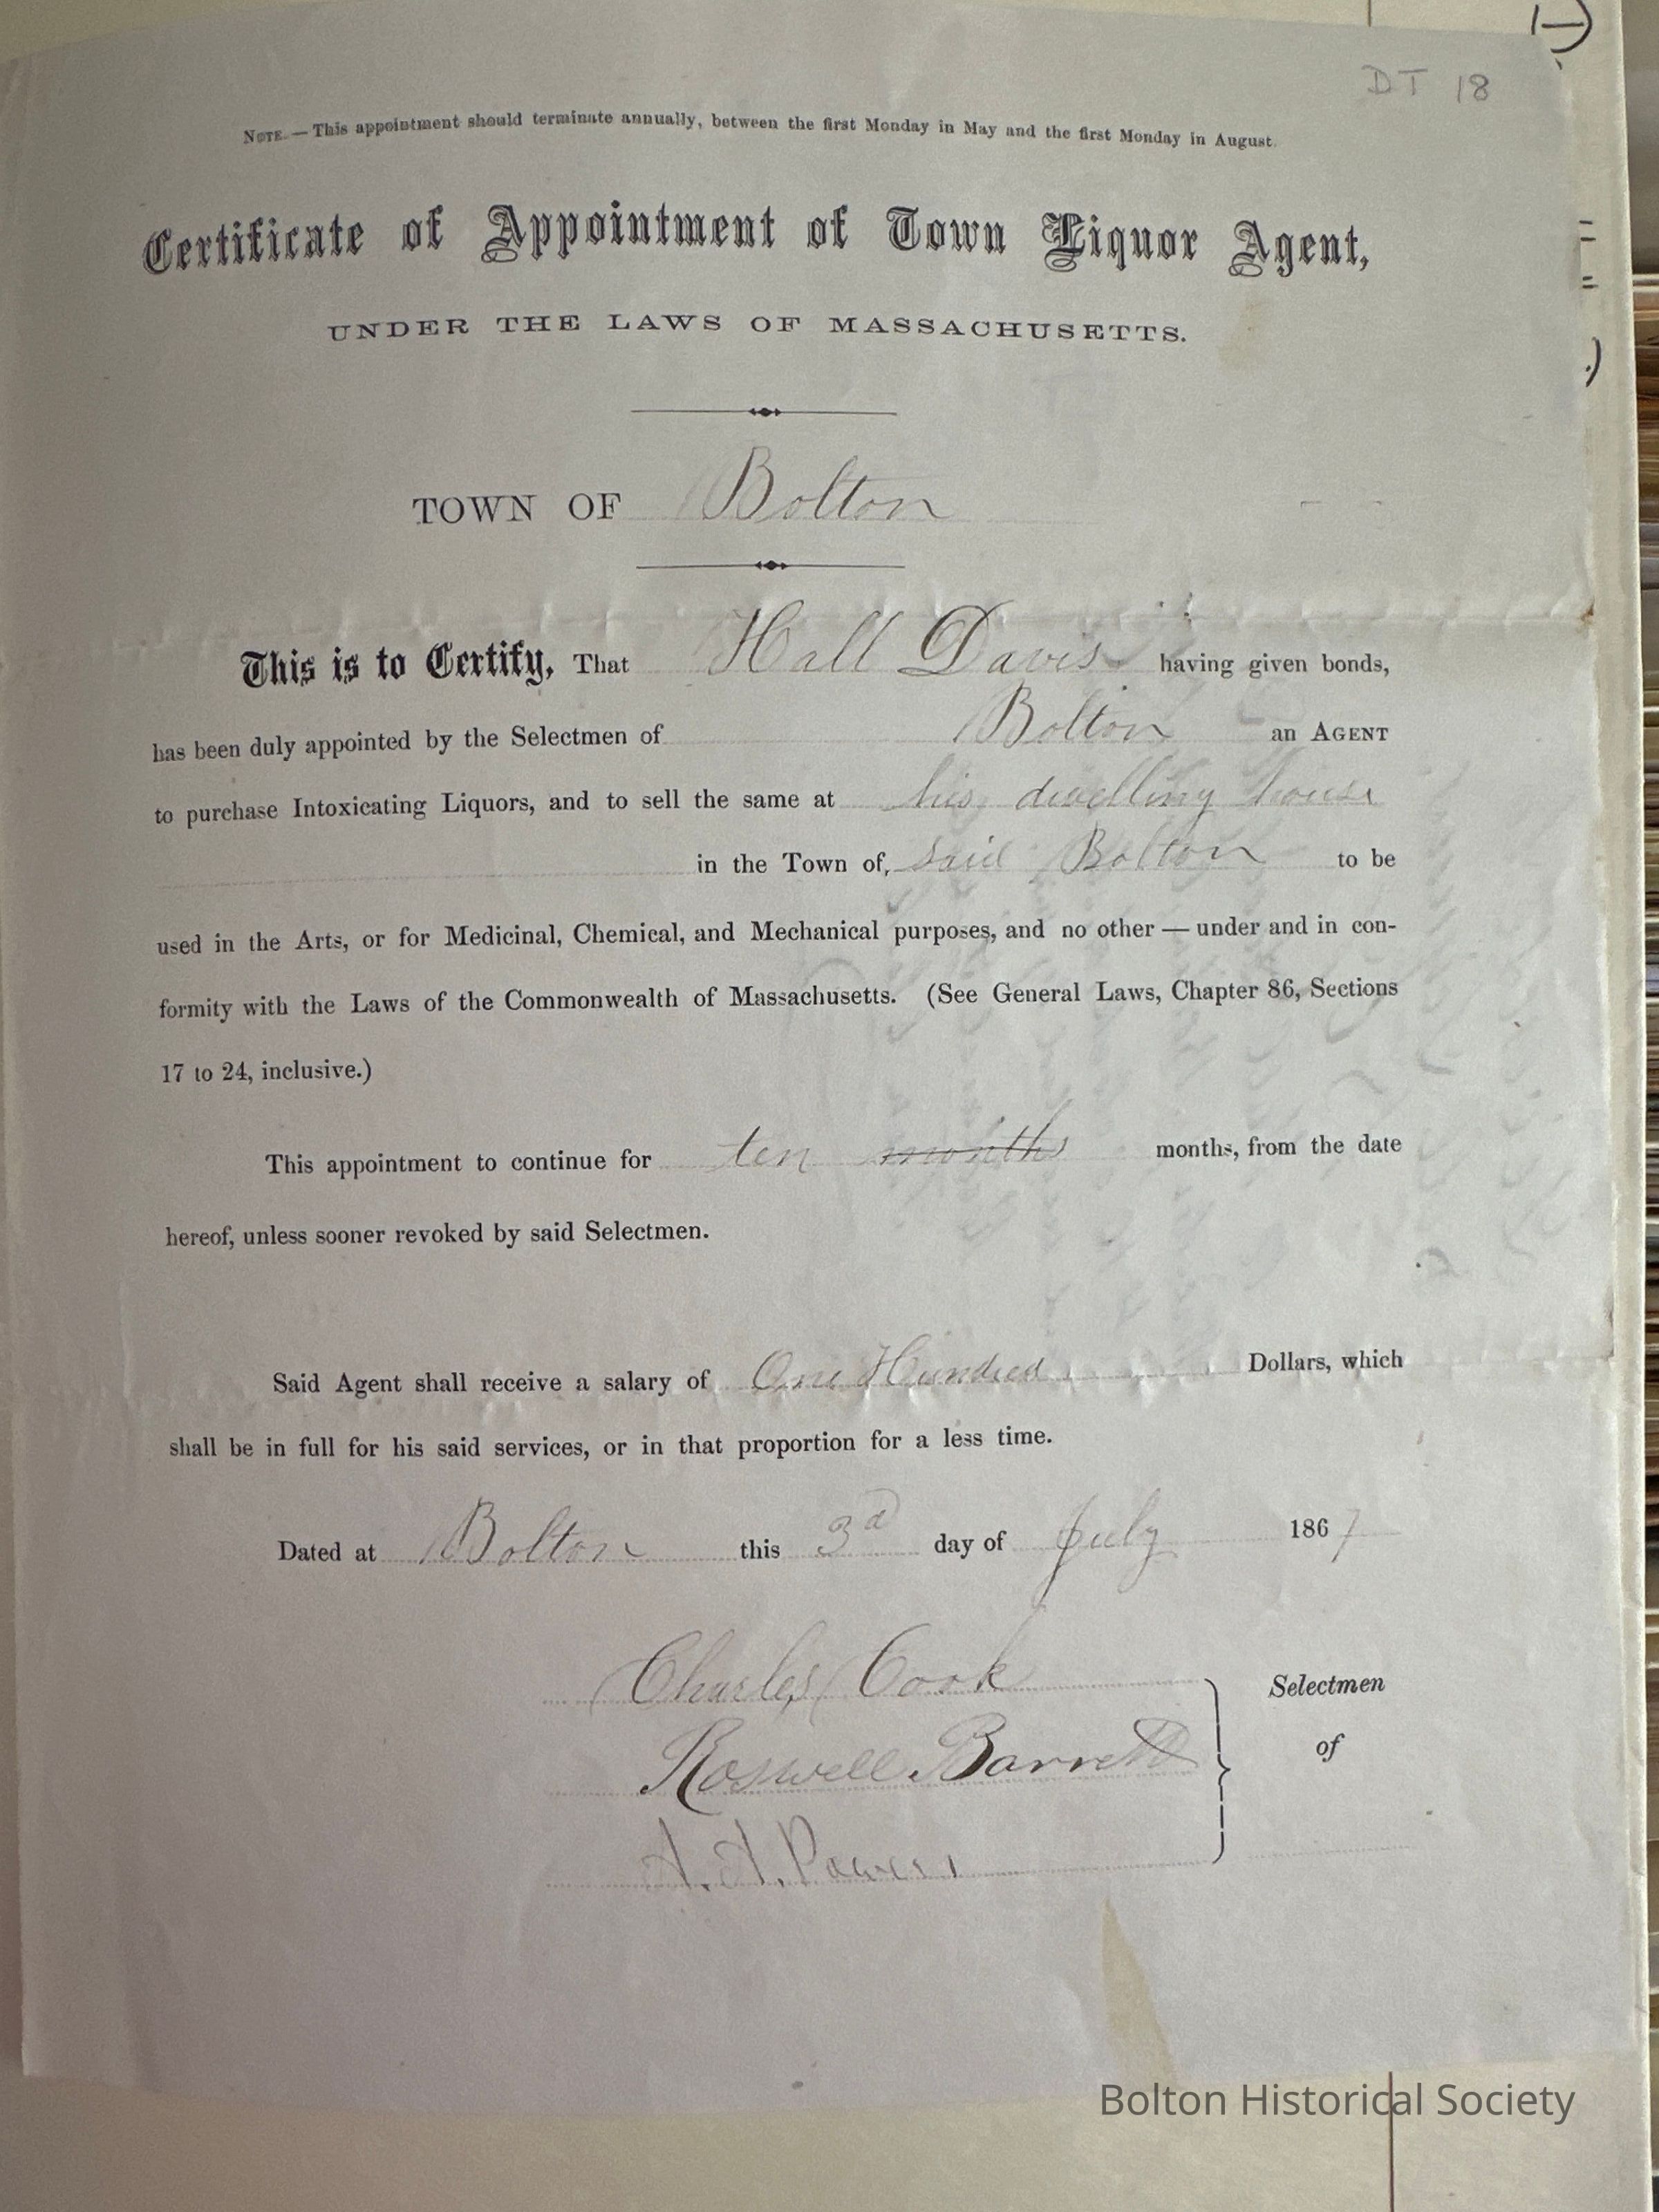 DT 18
NOTE.—This appointment should terminate annually, between the first Monday in May and the first Monday in August.
Certificate of Appointment of Town Liquor Agent,
UNDER THE LAWS OF MASSACHUSETTS.
TOWN OF Bolton
This is to Certify, That Hall Davis having given bonds,
has been duly appointed by the Selectmen of Bolton an AGENT
to purchase Intoxicating Liquors, and to sell the same at his dwelling house
in the Town of, said Bolton to be
used in the Arts, or for Medicinal, Chemical, and Mechanical purposes, and no other — under and in con-
formity with the Laws of the Commonwealth of Massachusetts. (See General Laws, Chapter 86, Sections
17 to 24, inclusive.)
This appointment to continue for ten months months, from the date
hereof, unless sooner revoked by said Selectmen.
Said Agent shall receive a salary of One Hundred Dollars, which
shall be in full for his said services, or in that proportion for a less time.
Dated at Bolton this 3d day of July 1867
Charles Cook
Selectmen
Roswell Barrett
of
A. A. Powers
Bolton Historical Society